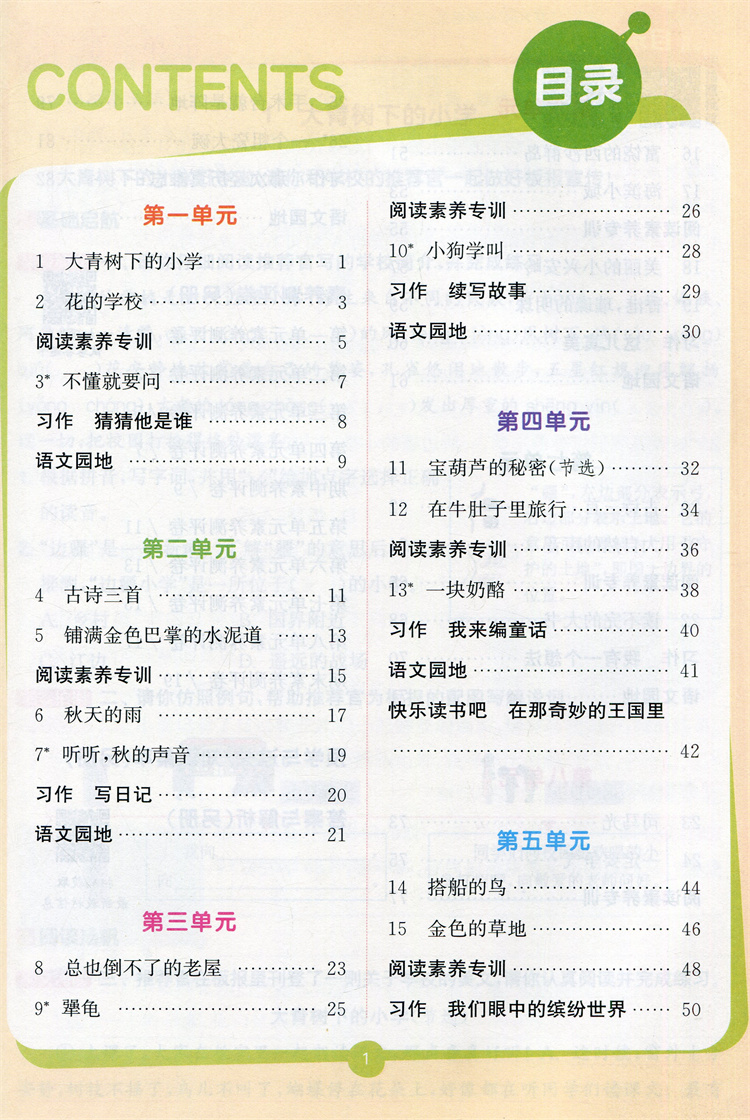 CONTENTS
目录
第一单元
1 大青树下的小学 ………… 1
2 花的学校 ………… 3
阅读素养专训 ………… 5
3* 不懂就要问 ………… 7
习作 猜猜他是谁 ………… 8
语文园地 ………… 9
第二单元
4 古诗三首 ………… 11
5 铺满金色巴掌的水泥道 ………… 13
阅读素养专训 ………… 15
6 秋天的雨 ………… 17
7* 听听,秋的声音 ………… 19
习作 写日记 ………… 20
语文园地 ………… 21
第三单元
8 总也倒不了的老屋 ………… 23
9* 犟龟 ………… 25
阅读素养专训 ………… 26
10* 小狗学叫 ………… 28
习作 续写故事 ………… 29
语文园地 ………… 30
第四单元
11 宝葫芦的秘密(节选) ………… 32
12 在牛肚子里旅行 ………… 34
阅读素养专训 ………… 36
13* 一块奶酪 ………… 38
习作 我来编童话 ………… 40
语文园地 ………… 41
快乐读书吧 在那奇妙的王国里
………… 42
第五单元
14 搭船的鸟 ………… 44
15 金色的草地 ………… 46
阅读素养专训 ………… 48
习作 我们眼中的缤纷世界 ………… 50
1